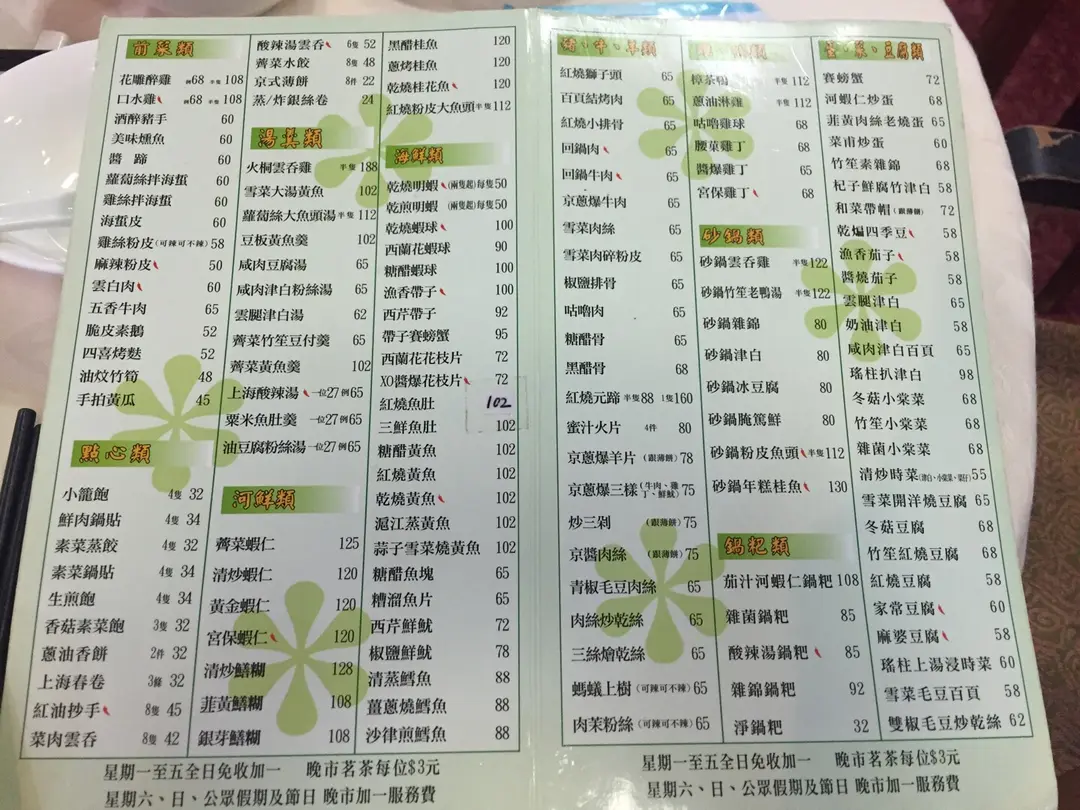 前菜類
花雕醉雞 例68 半隻108
口水雞 例68 半隻108
酒醉豬手 60
美味燻魚 60
醬蹄 60
蘿蔔絲拌海蜇 60
雞絲拌海蜇 60
海蜇皮 60
雞絲粉皮(可辣可不辣) 58
麻辣粉皮 50
雲白肉 60
五香牛肉 65
脆皮素鵝 52
四喜烤麩 52
油炆竹筍 48
手拍黃瓜 45
點心類
小籠飽 4隻 32
鮮肉鍋貼 4隻 34
素菜蒸餃 4隻 32
素菜鍋貼 4隻 34
生煎飽 4隻 34
香菇素菜飽 3隻 32
蔥油香餅 2件 32
上海春卷 3條 32
紅油抄手 8隻 45
菜肉雲吞 8隻 42
酸辣湯雲吞 6隻 52
薺菜水餃 8隻 48
京式薄餅 8件 22
蒸/炸銀絲卷 24
湯羹類
火桐雲吞雞 半隻 188
雪菜大湯黃魚 102
蘿蔔絲大魚頭湯 半隻 112
豆板黃魚羹 102
咸肉豆腐湯 65
咸肉津白粉絲湯 65
雲腿津白湯 62
薺菜竹笙豆付羹 65
薺菜黃魚羹 102
上海酸辣湯 一位27 例65
粟米魚肚羹 一位27 例65
油豆腐粉絲湯 一位27 例65
河鮮類
薺菜蝦仁 125
清炒蝦仁 120
黃金蝦仁 120
宮保蝦仁 120
清炒鱔糊 128
韮黃鱔糊 108
銀芽鱔糊 108
黑醋桂魚 120
蔥烤桂魚 120
乾燒桂花魚 120
紅燒粉皮大魚頭 半隻 112
海鮮類
乾燒明蝦 (兩隻起)每隻50
乾煎明蝦 (兩隻起)每隻50
乾燒蝦球 100
西蘭花蝦球 90
糖醋蝦球 100
漁香帶子 100
西芹帶子 92
帶子賽螃蟹 95
西蘭花花枝片 72
XO醬爆花枝片 72
紅燒魚肚 102
三鮮魚肚 102
糖醋黃魚 102
紅燒黃魚 102
乾燒黃魚 102
滬江蒸黃魚 102
蒜子雪菜燒黃魚 102
糖醋魚塊 65
糟溜魚片 65
西芹鮮魷 72
椒鹽鮮魷 78
清蒸鱈魚 88
薑蔥燒鱈魚 88
沙律煎鱈魚 88
星期一至五全日免收加一 晚市茗茶每位$3元
星期六、日、公眾假期及節日 晚市加一服務費
豬、牛、羊類
紅燒獅子頭 65
百頁結烤肉 65
紅燒小排骨 65
回鍋肉 65
回鍋牛肉 65
京蔥爆牛肉 65
雪菜肉絲 65
雪菜肉碎粉皮 65
椒鹽排骨 65
咕嚕肉 65
糖醋骨 65
黑醋骨 68
紅燒元蹄 半隻88 1隻160
蜜汁火片 4件 80
京蔥爆羊片 (跟薄餅) 78
京蔥爆三樣 (牛肉、雞丁、鮮魷) 75
炒三剁 (跟薄餅) 75
京醬肉絲 (跟薄餅) 75
青椒毛豆肉絲 65
肉絲炒乾絲 65
三絲燴乾絲 65
螞蟻上樹 (可辣可不辣) 65
肉茉粉絲 (可辣可不辣) 65
樟茶鴨 半隻 112
蔥油淋雞 半隻 112
咕嚕雞球 68
腰菓雞丁 68
醬爆雞丁 68
宮保雞丁 68
砂鍋類
砂鍋雲吞雞 半隻122
砂鍋竹笙老鴨湯 半隻122
砂鍋雜錦 80
砂鍋津白 80
砂鍋冰豆腐 80
砂鍋腌篤鮮 80
砂鍋粉皮魚頭 半隻112
砂鍋年糕桂魚 130
鍋粑類
茄汁河蝦仁鍋粑 108
雜菌鍋粑 85
酸辣湯鍋粑 85
雜錦鍋粑 92
淨鍋粑 32
蛋、菜、豆腐類
賽螃蟹 72
河蝦仁炒蛋 68
韮黃肉絲老燒蛋 65
菜甫炒蛋 60
竹笙素雜錦 68
杞子鮮腐竹津白 58
和菜帶帽 (跟薄餅) 72
乾煸四季豆 58
漁香茄子 58
醬燒茄子 58
雲腿津白 65
奶油津白 58
咸肉津白百頁 65
瑤柱扒津白 98
冬菇小棠菜 68
竹笙小棠菜 68
雜菌小棠菜 68
清炒時菜 55
雪菜開洋燒豆腐 65
冬菇豆腐 68
竹笙紅燒豆腐 68
紅燒豆腐 58
家常豆腐 60
麻婆豆腐 58
瑤柱上湯浸時菜 60
雪菜毛豆百頁 58
雙椒毛豆炒乾絲 62
星期一至五全日免收加一 晚市茗茶每位$3元
星期六、日、公眾假期及節日 晚市加一服務費